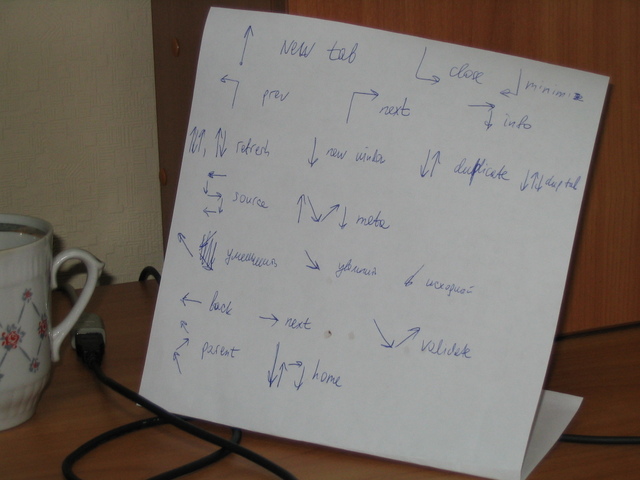 new tab close minimize
prev next info
refresh new window duplicate dup tab
source meta
уменьшить увеличить исходный
back next validate
parent home